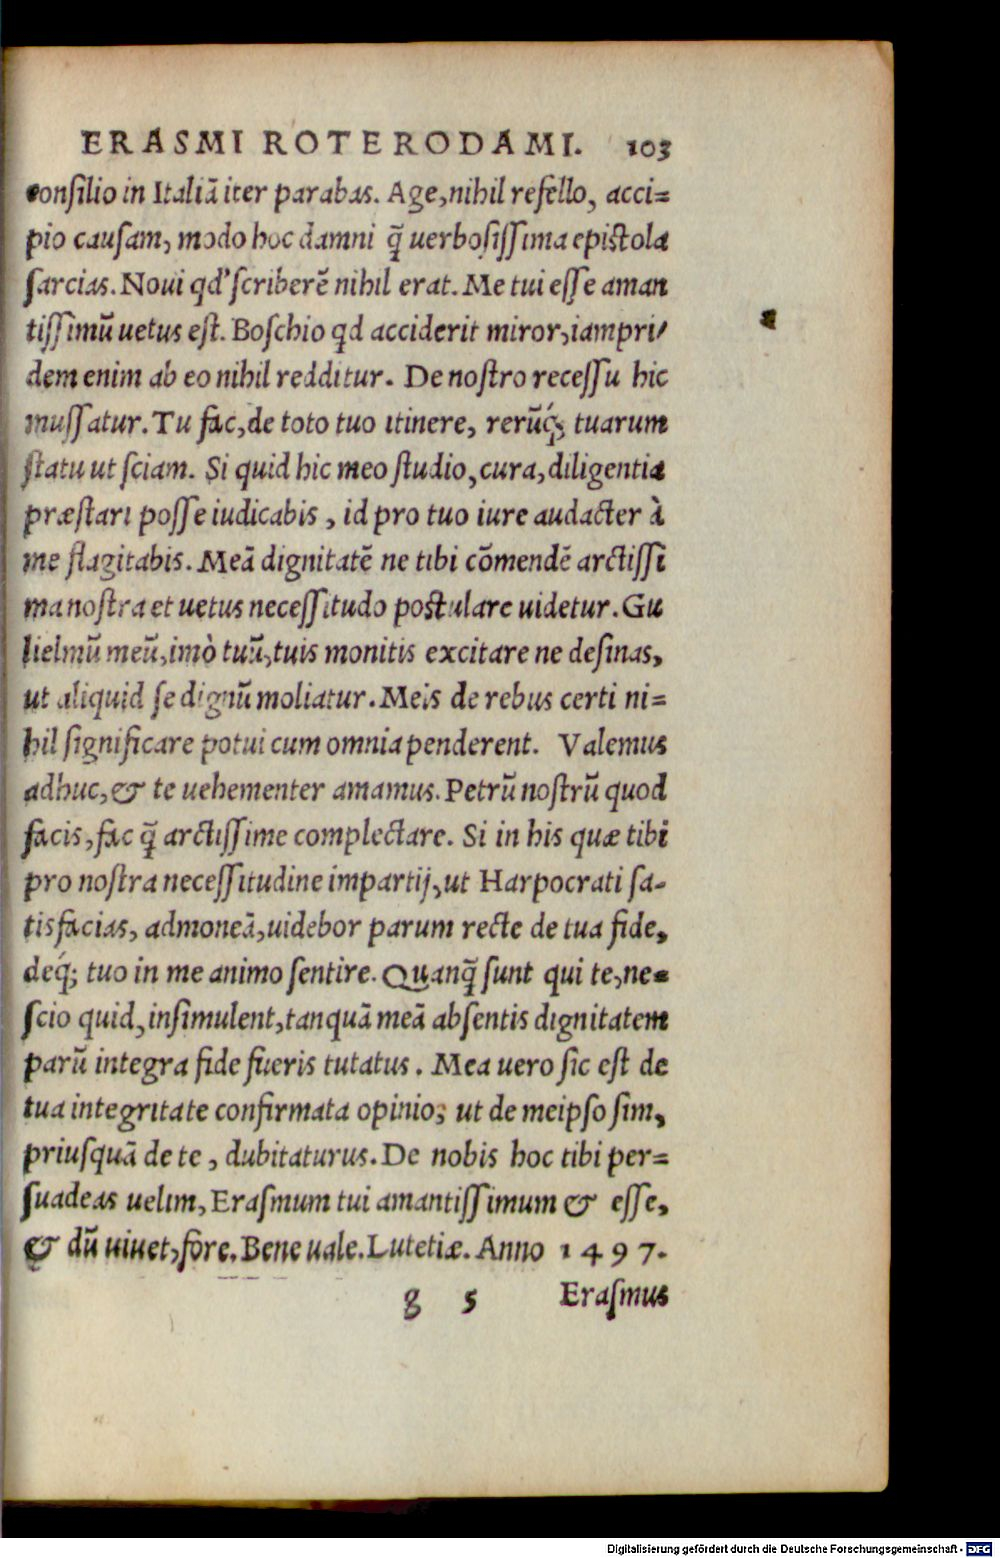 ERASMI ROTERODAMI. 103
consilio in Italiã iter parabas. Age, nihil refello, acci=
pio causam, modo hoc damni q̃ uerbosissima epistola
sarcias. Noui qd' scriberẽ nihil erat. Me tui esse aman
tissimũ uetus est. Boschio qd acciderit miror, iampri/
dem enim ab eo nihil redditur. De nostro recessu hic
mussatur. Tu fac, de toto tuo itinere, rerũq́; tuarum
statu ut sciam. Si quid hic meo studio, cura, diligentia
præstari posse iudicabis, id pro tuo iure audacter à
me flagitabis. Meã dignitatẽ ne tibi cõmendẽ arctissi
ma nostra et uetus necessitudo postulare uidetur. Gu
lielmũ meũ, imò tuũ, tuis monitis excitare ne desinas,
ut aliquid se dignũ moliatur. Meis de rebus certi ni=
hil significare potui cum omnia penderent. Valemus
adhuc, & te uehementer amamus. Petrũ nostrũ quod
facis, fac q̃ arctissime complectare. Si in his quæ tibi
pro nostra necessitudine impartij, ut Harpocrati sa-
tisfacias, admoneã, uidebor parum recte de tua fide,
deq́; tuo in me animo sentire. Quanq̃ sunt qui te, ne=
scio quid, insimulent, tanquã meã absentis dignitatem
parũ integra fide fueris tutatus. Mea uero sic est de
tua integritate confirmata opinio; ut de meipso sim,
priusquã de te, dubitaturus. De nobis hoc tibi per=
suadeas uelim, Erasmum tui amantissimum & esse,
& dũ uiuet, fore. Bene uale. Lutetiæ. Anno 1497.
g 5 Erasmus
Digitalisierung gefördert durch die Deutsche Forschungsgemeinschaft - DFG